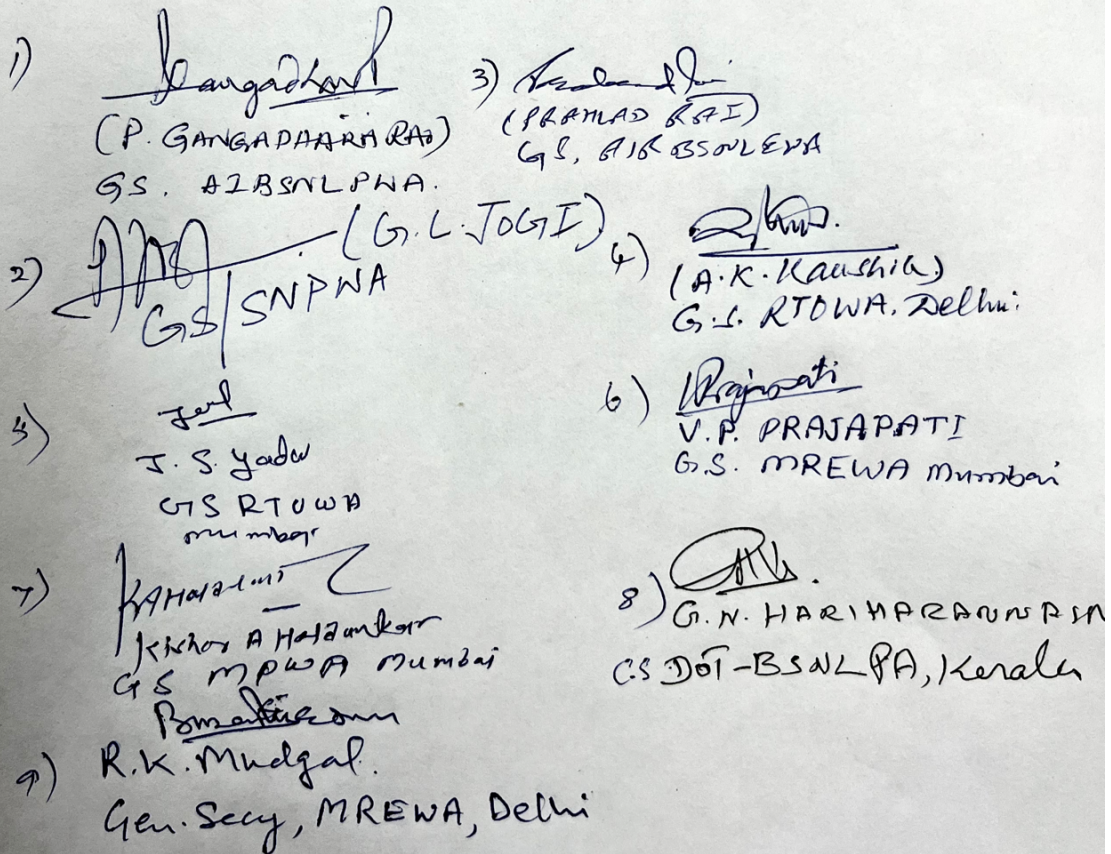 1) Gangadhar
(P. GANGADHARA RAO)
GS. AIBSNLPWA.
2) (G.L. JOGI)
GS/SNPWA
3)
(PRAHLAD RAI)
GS, AIRBSNLEWA
4)
(A.K. Kaushik)
G.S. RTOWA, Delhi.
5)
J. S. Yadav
GS RTOWA
mumbai
6) VPrajapati
V.P. PRAJAPATI
G.S. MREWA Mumbai
7) KAHaldankar
Kishor A Haldankar
GS MPWA Mumbai
8)
G.N. HARIHARANNAIN
GS DOT-BSNL PA, Kerala
9) R.K. Mudgal.
Gen. Secy, MREWA, Delhi